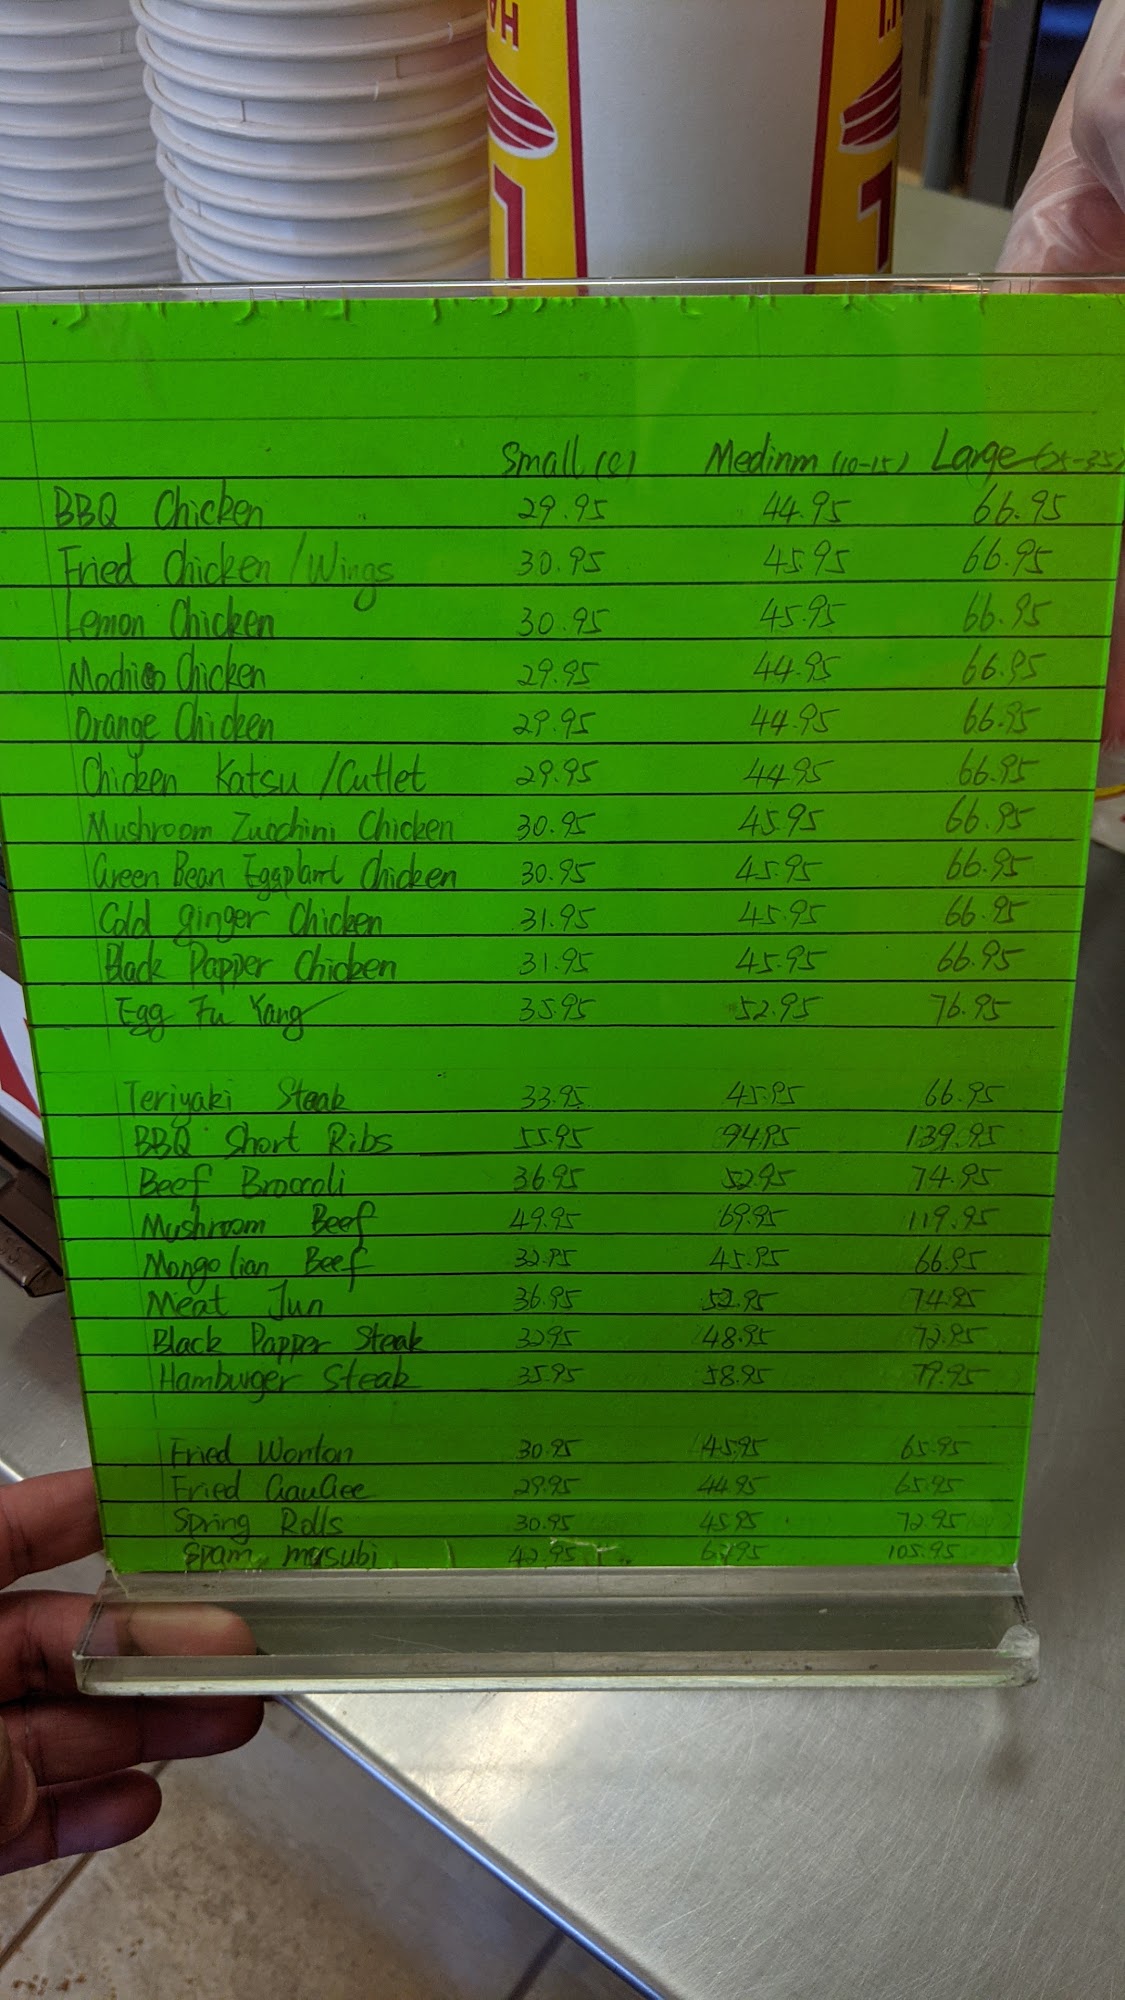 HA
L
L
Small (e) Medinm (10-15) Large (25-35)
BBQ Chicken 29.95 44.95 66.95
Fried Chicken / Wings 30.95 45.95 66.95
Lemon Chicken 30.95 45.95 66.95
Mochi Chicken 29.95 44.95 66.95
Orange Chicken 29.95 44.95 66.95
Chicken Katsu / Cutlet 29.95 44.95 66.95
Mushroom Zucchini Chicken 30.95 45.95 66.95
Green Bean Eggplant Chicken 30.95 45.95 66.95
Cold ginger Chicken 31.95 45.95 66.95
Black Papper Chicken 31.95 45.95 66.95
Egg Fu Yang 35.95 52.95 76.95
Teriyaki Steak 33.95 45.95 66.95
BBQ Short Ribs 55.95 94.95 139.95
Beef Broccoli 36.95 52.95 74.95
Mushroom Beef 49.95 69.95 119.95
Mongolian Beef 32.95 45.95 66.95
Meat Jun 36.95 52.95 74.95
Black Papper Steak 32.95 48.95 72.95
Hamburger Steak 35.95 58.95 79.95
Fried Wonton 30.95 45.95 65.95
Fried GauGee 29.95 44.95 65.95
Spring Rolls 30.95 45.95 72.95
Spam musubi 42.95 105.95